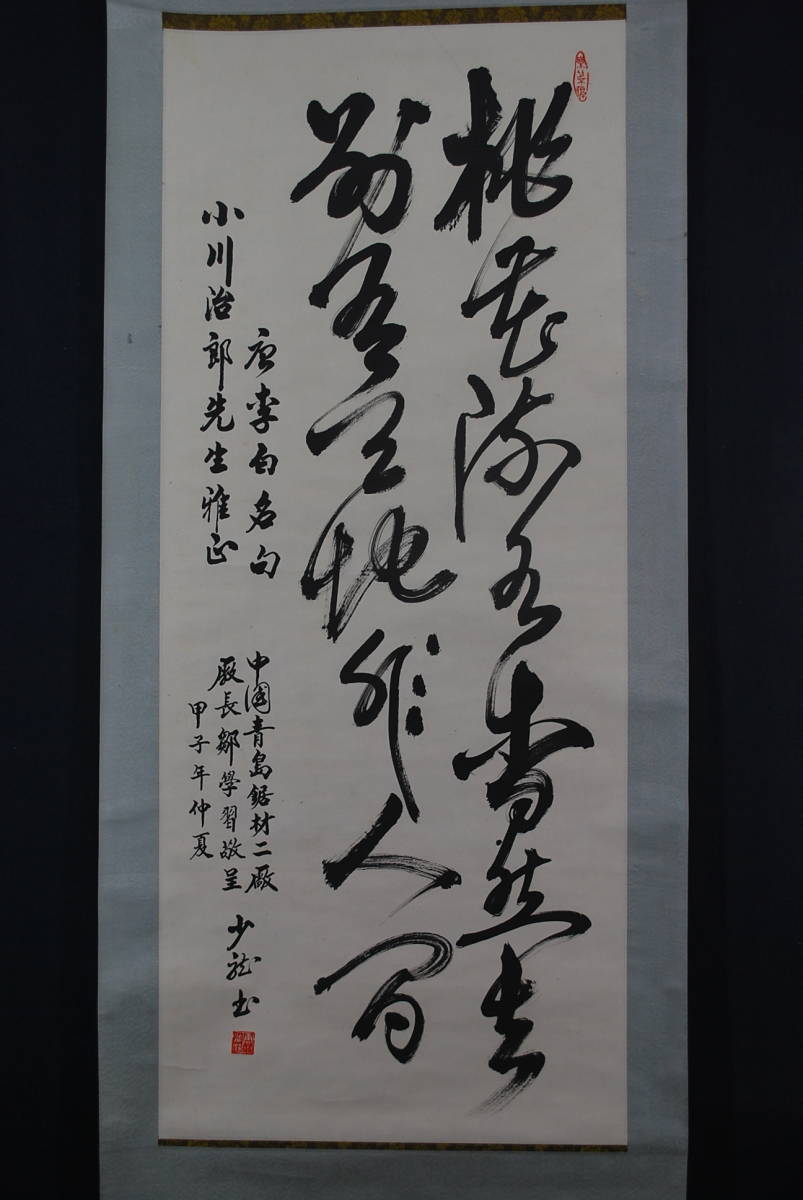 桃花流水杳然去
別有天地非人間
唐李白名句
小川治郎先生雅正
中國青島鋸材二廠
廠長鄒學習敬呈
甲子年仲夏
少龍书